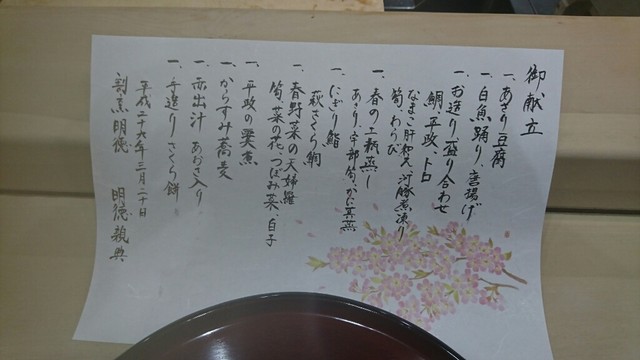 御献立
一、あさり豆腐
一、白魚踊り、唐揚げ
一、お造り盛り合わせ
鯛、平政、トロ
なまこ肝和え、河豚煮凍り
筍、わらび
一、春の土瓶蒸し
あさり、宇部筍、かに真蒸
一、にぎり鮨
萩さくら鯛
一、春野菜の天婦羅
筍、菜の花、つぼみ菜、白子
一、平政の粟煮
一、からすみ蕎麦
一、赤出汁 あおさ入り
一、手造りさくら餅
平成二十九年三月二十日
割烹明徳 明徳親典